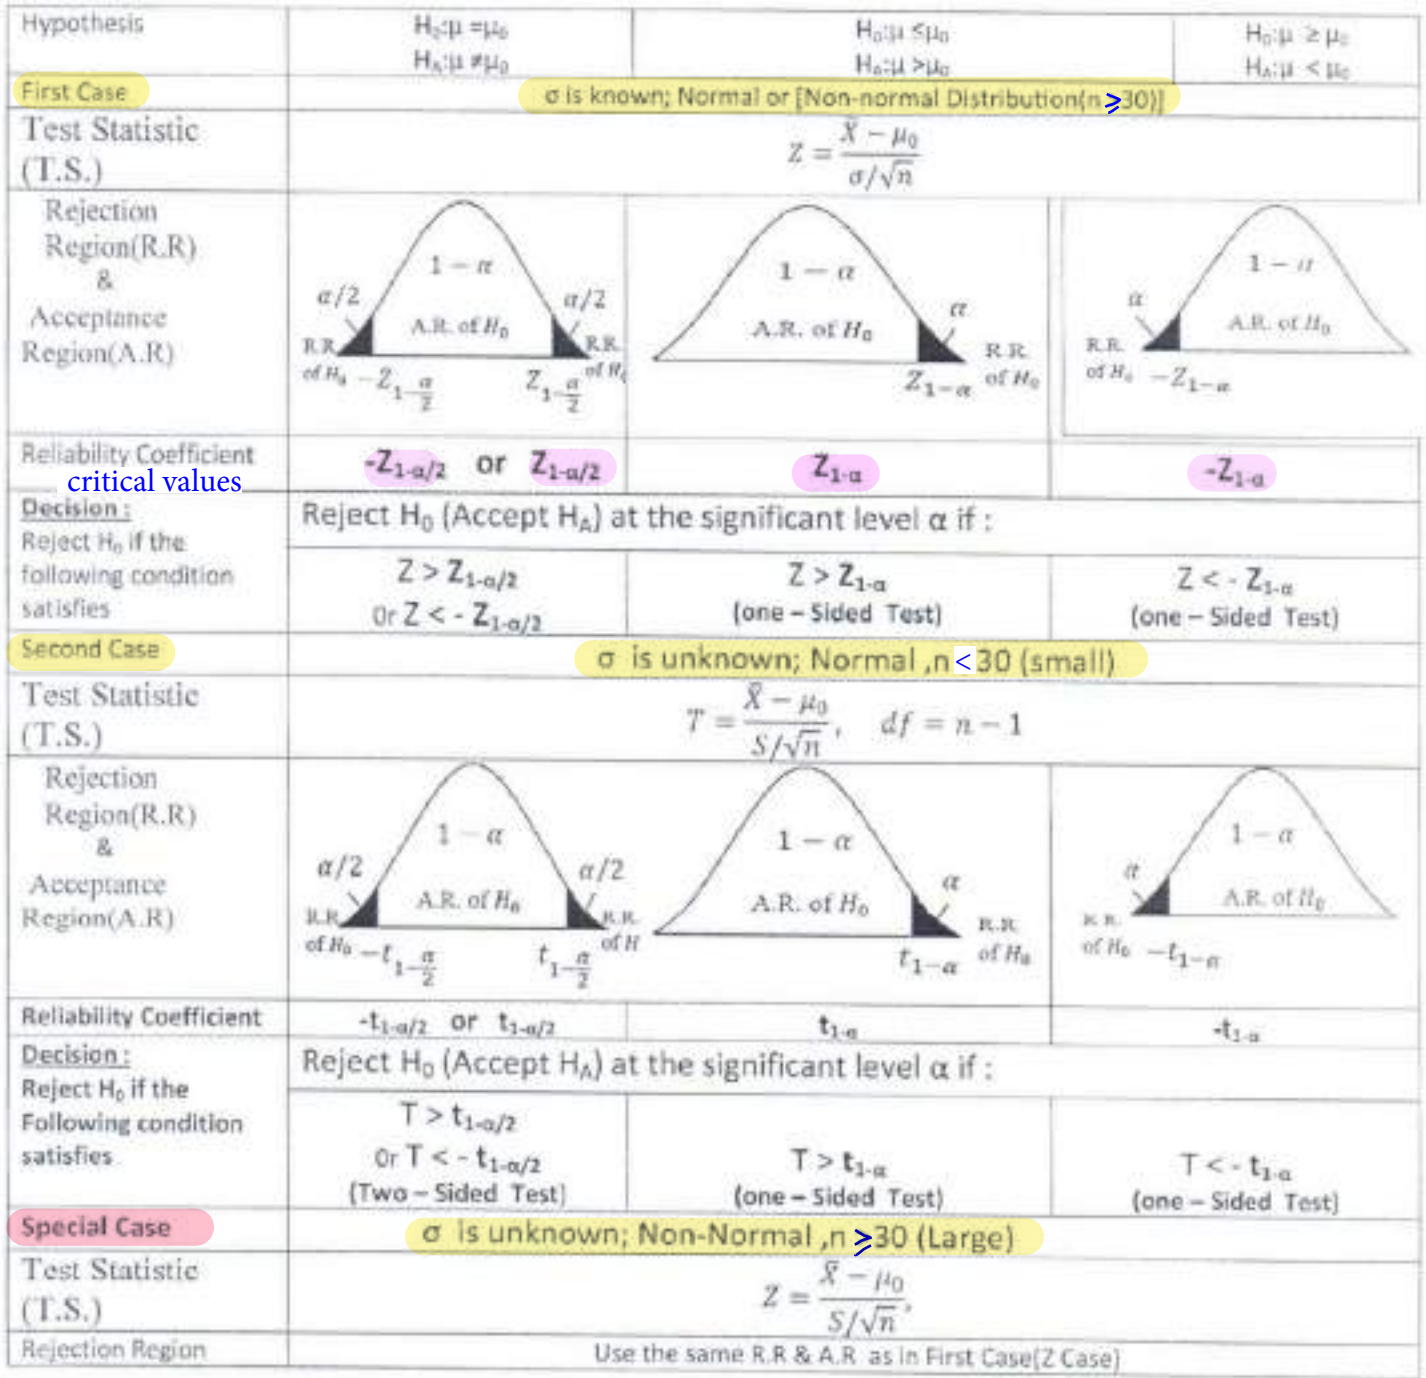 Hypothesis
H₀:μ =μ₀
H_A:μ ≠μ₀
H₀:μ ≤μ₀
H_A:μ >μ₀
H₀:μ ≥ μ₀
H_A:μ < μ₀
First Case
σ is known; Normal or [Non-normal Distribution(n ⩾30)]
Test Statistic
(T.S.)
Z = (X̄ − μ₀)/(σ/√n)
Rejection
Region(R.R)
&
Acceptance
Region(A.R)
1 − α
α/2
α/2
A.R. of H₀
R.R.
of H₀
R.R.
of H₀
−Z_{1−α/2}
Z_{1−α/2}
1 − α
α
A.R. of H₀
R.R.
of H₀
Z_{1−α}
1 − α
α
A.R. of H₀
R.R.
of H₀
−Z_{1−α}
Reliability Coefficient
critical values
-Z_{1-α/2} or Z_{1-α/2}
Z_{1-α}
-Z_{1-α}
Decision :
Reject H₀ if the
following condition
satisfies
Reject H₀ (Accept H_A) at the significant level α if :
Z > Z_{1-α/2}
Or Z < - Z_{1-α/2}
Z > Z_{1-α}
(one – Sided Test)
Z < - Z_{1-α}
(one – Sided Test)
Second Case
σ is unknown; Normal ,n < 30 (small)
Test Statistic
(T.S.)
T = (X̄ − μ₀)/(S/√n), df = n − 1
Rejection
Region(R.R)
&
Acceptance
Region(A.R)
1 − α
α/2
α/2
A.R. of H₀
R.R.
of H₀
R.R.
of H
−t_{1−α/2}
t_{1−α/2}
1 − α
α
A.R. of H₀
R.R.
of H₀
t_{1−α}
1 − α
α
A.R. of H₀
R.R.
of H₀
−t_{1−α}
Reliability Coefficient
-t_{1-α/2} or t_{1-α/2}
t_{1-α}
-t_{1-α}
Decision :
Reject H₀ if the
Following condition
satisfies
Reject H₀ (Accept H_A) at the significant level α if :
T > t_{1-α/2}
Or T < - t_{1-α/2}
(Two – Sided Test)
T > t_{1-α}
(one – Sided Test)
T < - t_{1-α}
(one – Sided Test)
Special Case
σ is unknown; Non-Normal ,n ⩾30 (Large)
Test Statistic
(T.S.)
Z = (X̄ − μ₀)/(S/√n),
Rejection Region
Use the same R.R & A.R as in First Case(Z Case)